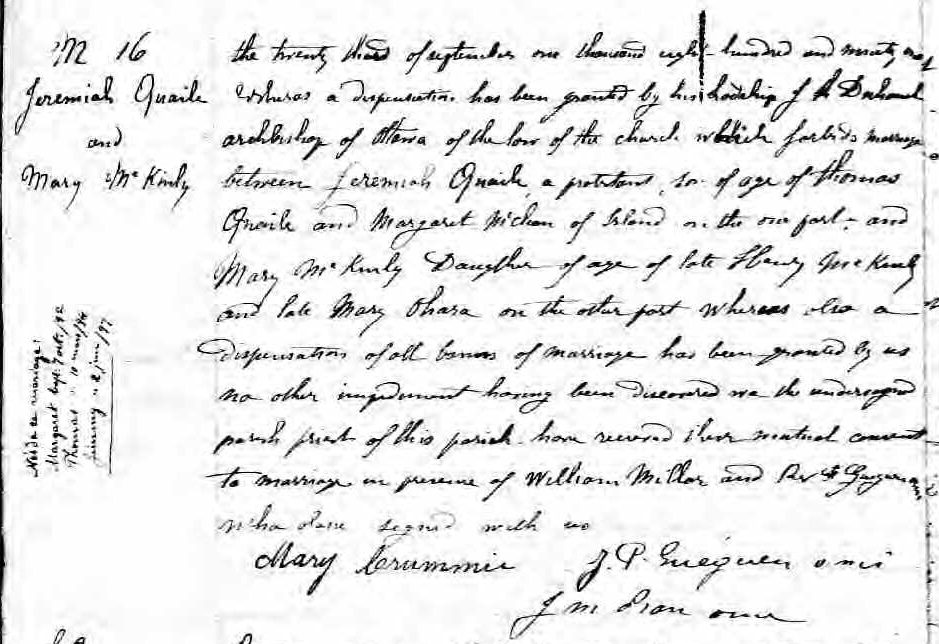 M 16
Jeremiah Quaile
and
Mary McKinly
the twenty third of september one thousand eight hundred and ninety one
Whereas a dispensation has been granted by his Lordship J Duhamel
archbishop of Ottawa of the law of the church which forbids marriage
between Jeremiah Quaile a protestant son of age of Thomas
Quaile and Margaret of Irland on the one part and
Mary McKinly Daughter of age of late Henry McKinly
and late Mary Ohara on the other part Whereas also a
dispensation of all banns of marriage has been granted by us
no other impediment having been discovered we the undersigned
parish priest of this parish have received their mutual consent
to marriage in presence of William Millar and Rev
who have signed with us
Mary Crummie J. P. Gueguen o m i
J M omi
Nés de ce mariage:
Margaret bapt. /92
Thomas " 10 /94
" 2 juin /97